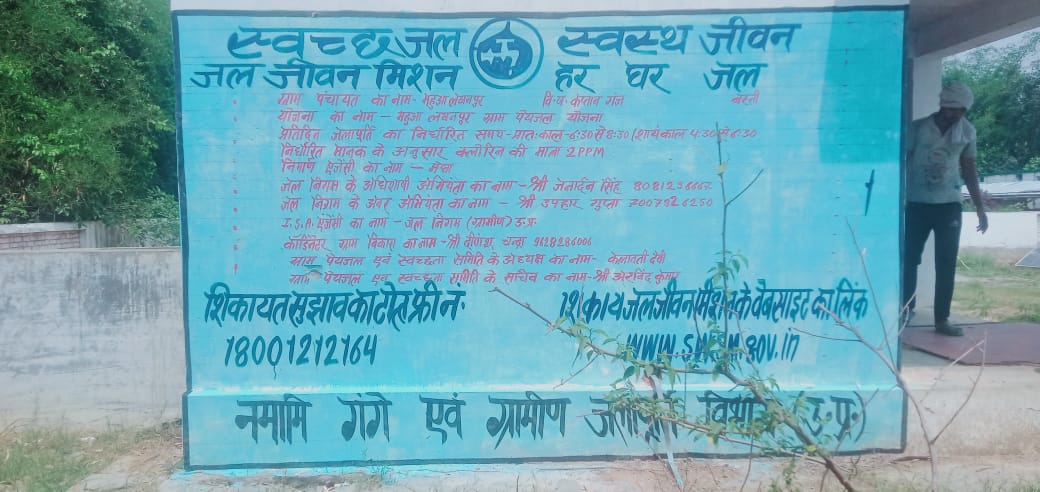 स्वच्छ जल स्वस्थ जीवन
जल जीवन मिशन हर घर जल
ग्राम पंचायत का नाम- महुआ लखनपुर वि.ख. कप्तान गंज बस्ती
योजना का नाम - महुआ लखनपुर ग्राम पेयजल योजना
प्रतिदिन जलापूर्ति का निर्धारित समय-प्रातःकाल-6:30 से 8:30/शायंकाल 4:30 से 6:30
निर्धारित मानक के अनुसार क्लोरिन की मात्रा 2PPM
निर्माण एजेंसी का नाम - मेघा
जल निगम के अधिशाषी अभियंता का नाम - श्री जनार्दन सिंह
जल निगम के अवर अभियंता का नाम - श्री उपहार गुप्ता 7007926250
I.S.A. एजेंसी का नाम - जल निगम (ग्रामीण) उ.प्र.
कॉर्डिनेटर ग्राम विकास का नाम -श्री चन्द्रा 9628286006
ग्राम पेयजल एवं स्वच्छता समिति के अध्यक्ष का नाम- केलावती देवी
ग्राम पेयजल एवं स्वच्छता समिति के सचिव का नाम-श्री अरविंद कुमार
शिकायत सुझाव का टोल फ्री नं॰ जलजीवन मिशन के वैबसाइट का लिंक
18001212164 WWW.SWSM.GOV.IN
नमामि गंगे एवं ग्रामीण जलापूर्ति उ॰प्र॰)